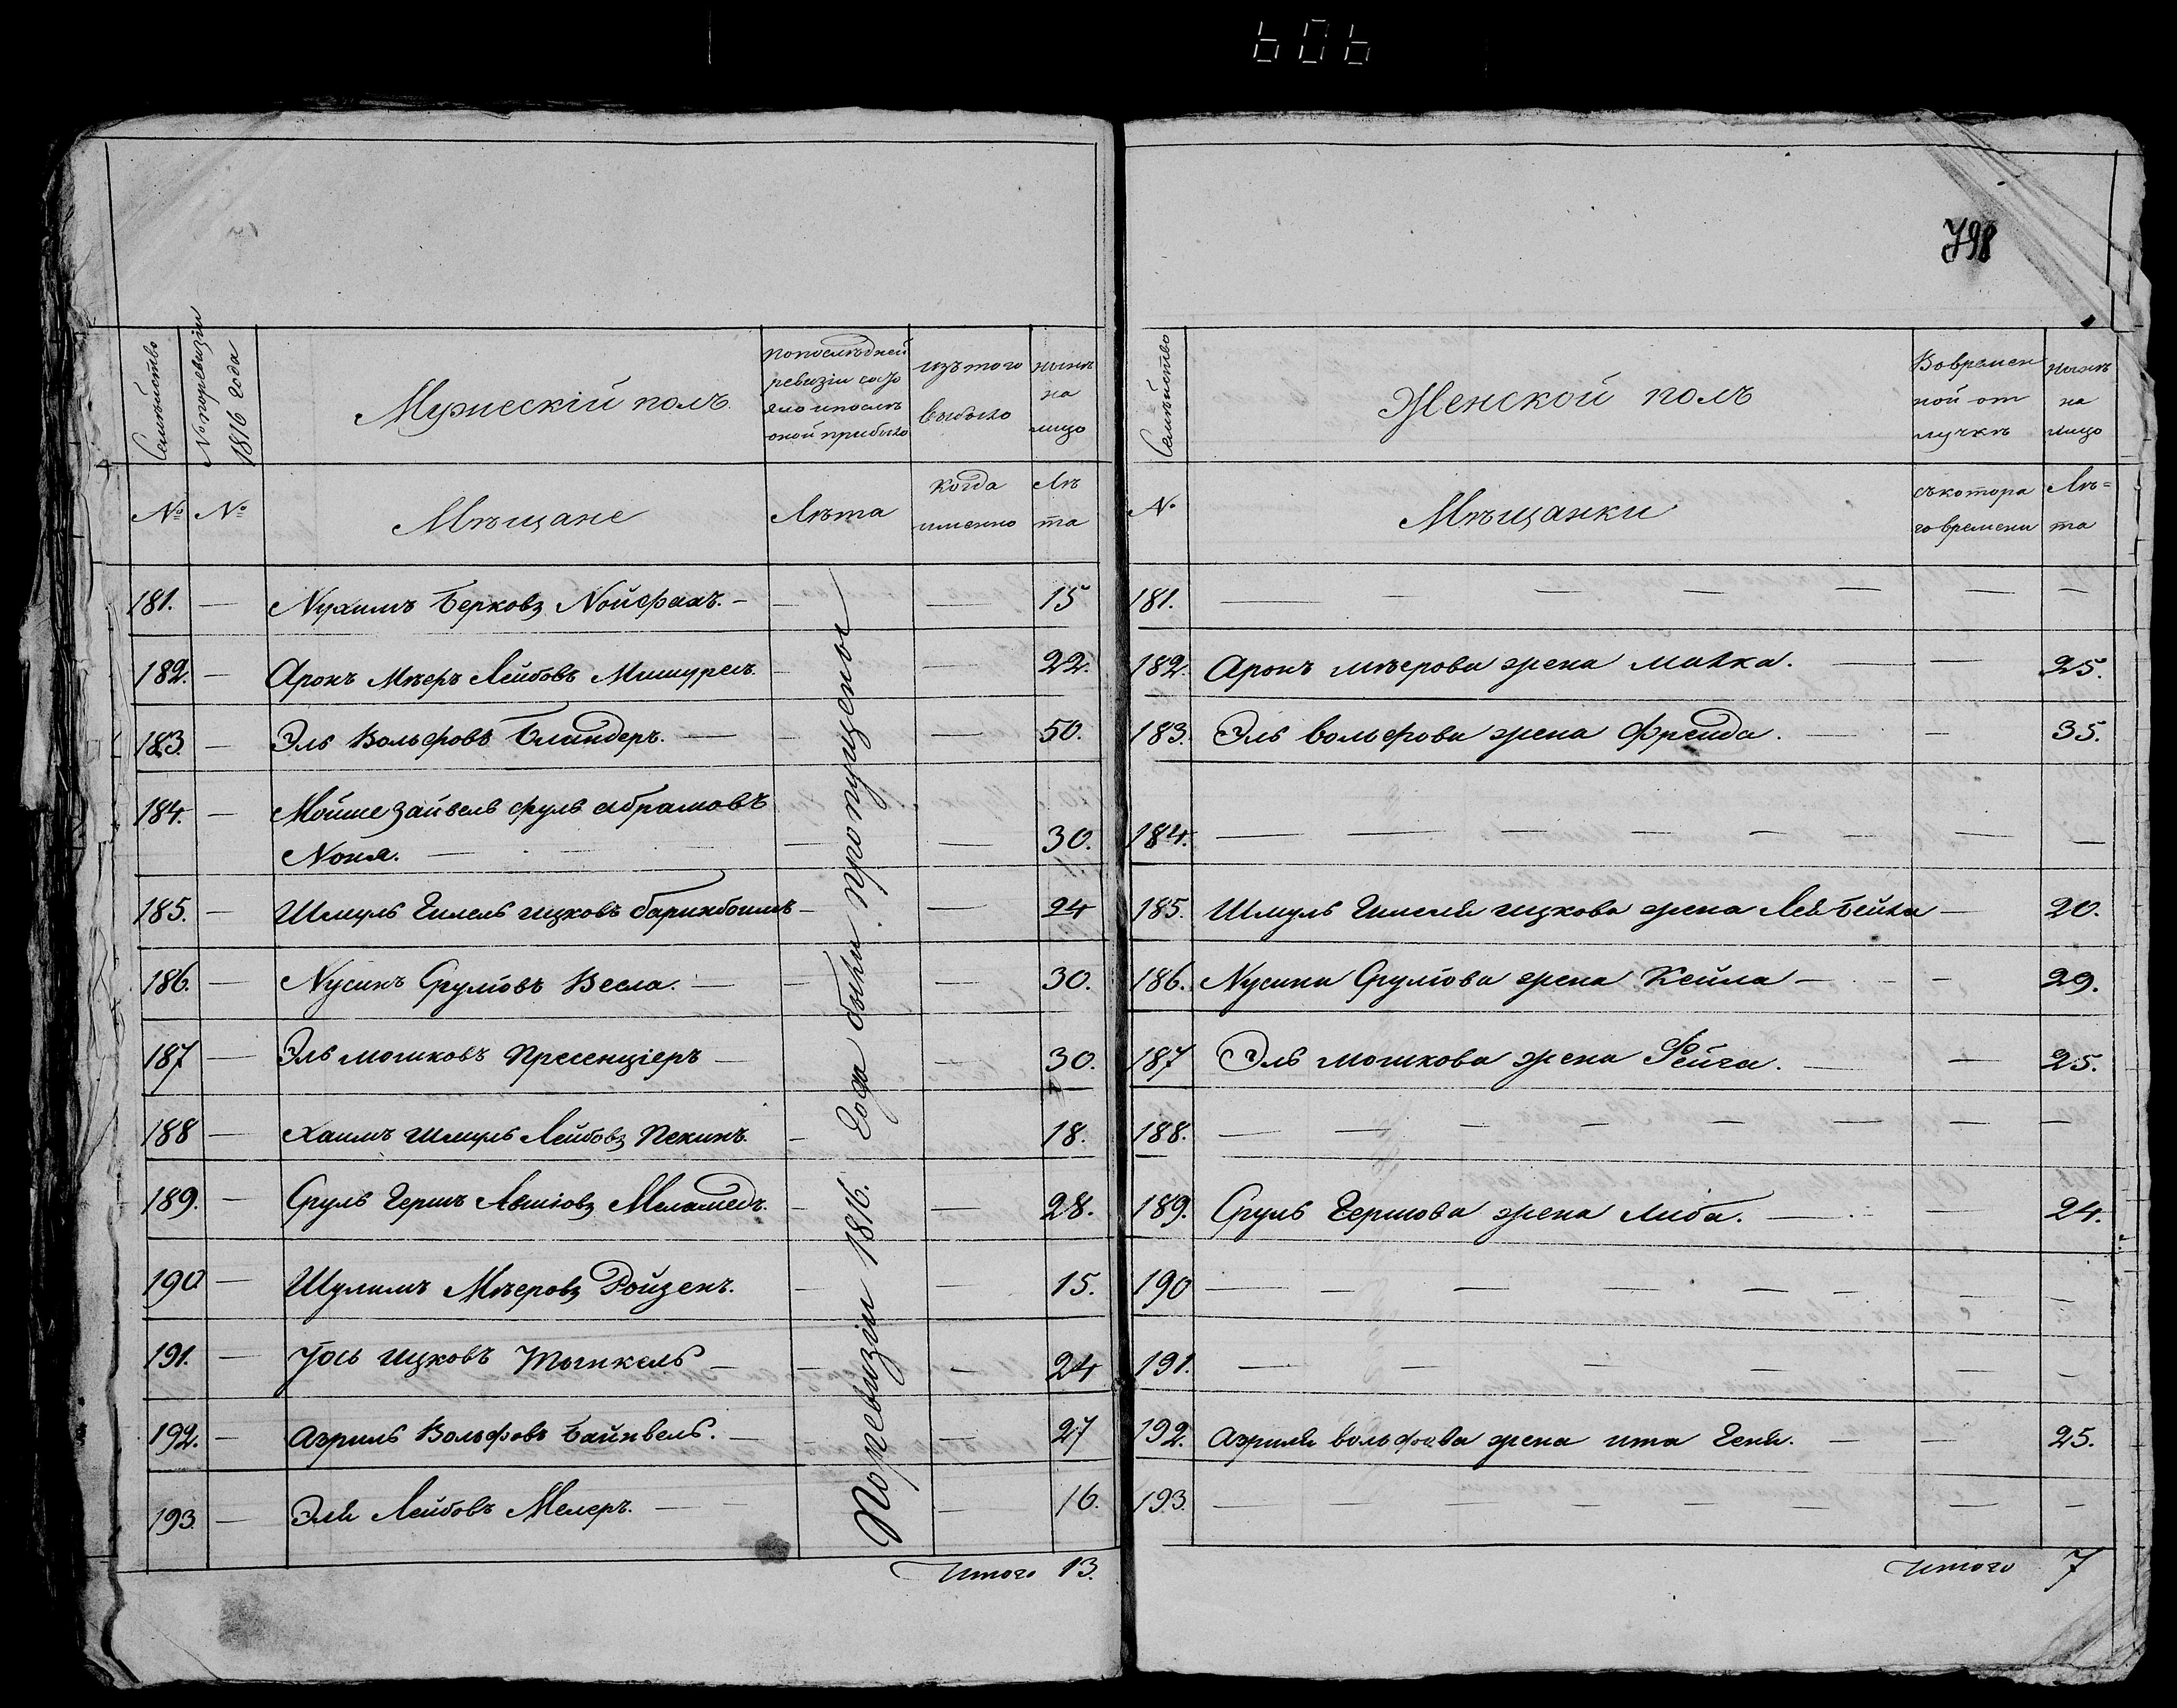 606
798
Семейство
№ поревизіи
1816 года
Мужескій полъ
попослѣдней
ревизіи состо
яло ипослѣ
оной прибыло
изътого
выбыло
нынѣ
на
лицо
№ №
Мѣщане
Лѣта
когда
именно
Лѣ
та
181. — Нухимъ Берковъ Нойфахъ. — — — 15
182. — Аронъ Мѣеръ Лейбовъ Мишуресъ. — — 22.
183 — Эль Вольфовъ Блиндеръ. — — — 50.
184. — Мойше Зайвель Сруль Абрамовъ
Нокля. — — — 30.
185. — Шмуль Гилель ицковъ — — 24
186. — Нусинъ Срулiовъ Весла. — — — 30.
187 — Эль мошковъ Пресенціеръ — — 30.
188 — Хаимъ Шмуль Лейбовъ Пекинъ. — 18.
189. — Сруль Гершъ Авшiовъ Меламедъ. — — 28.
190 — Шулимъ Мѣеровъ Ройзенъ. — — 15.
191. — Іось ицковъ — — — 24
192. — Азриль Вольфовъ Байнвель. — — 27
193. — Эля Лейбовъ Мелеръ. — — — 16.
Поревизіи 1816. Года были пропущены
Итого 13.
Семейство
Женской полъ
Вовремен
ной от
лучкѣ
нынѣ
на
лицо
№
Мѣщанки
съкотора
го времени
Лѣ=
та
181. — — — — — — — —
182. Аронъ мѣерова жена малка. — — 25.
183. Эль вольфова жена Фрейда. — — 35.
184. — — — — — — — —
185. Шмуль Гилеля ицкова жена Лея Бейла — 20.
186. Нусина Срулiова жена Кейла — — 29.
187 Эль мошкова жена Фейга. — — 25.
188. — — — — — — — —
189. Сруль Гершова жена Либа. — — 24.
190 — — — — — — — —
191. — — — — — —
192. Азриля вольфова жена ита Геня. — — 25.
193. — — — — — — — —
Итого 7